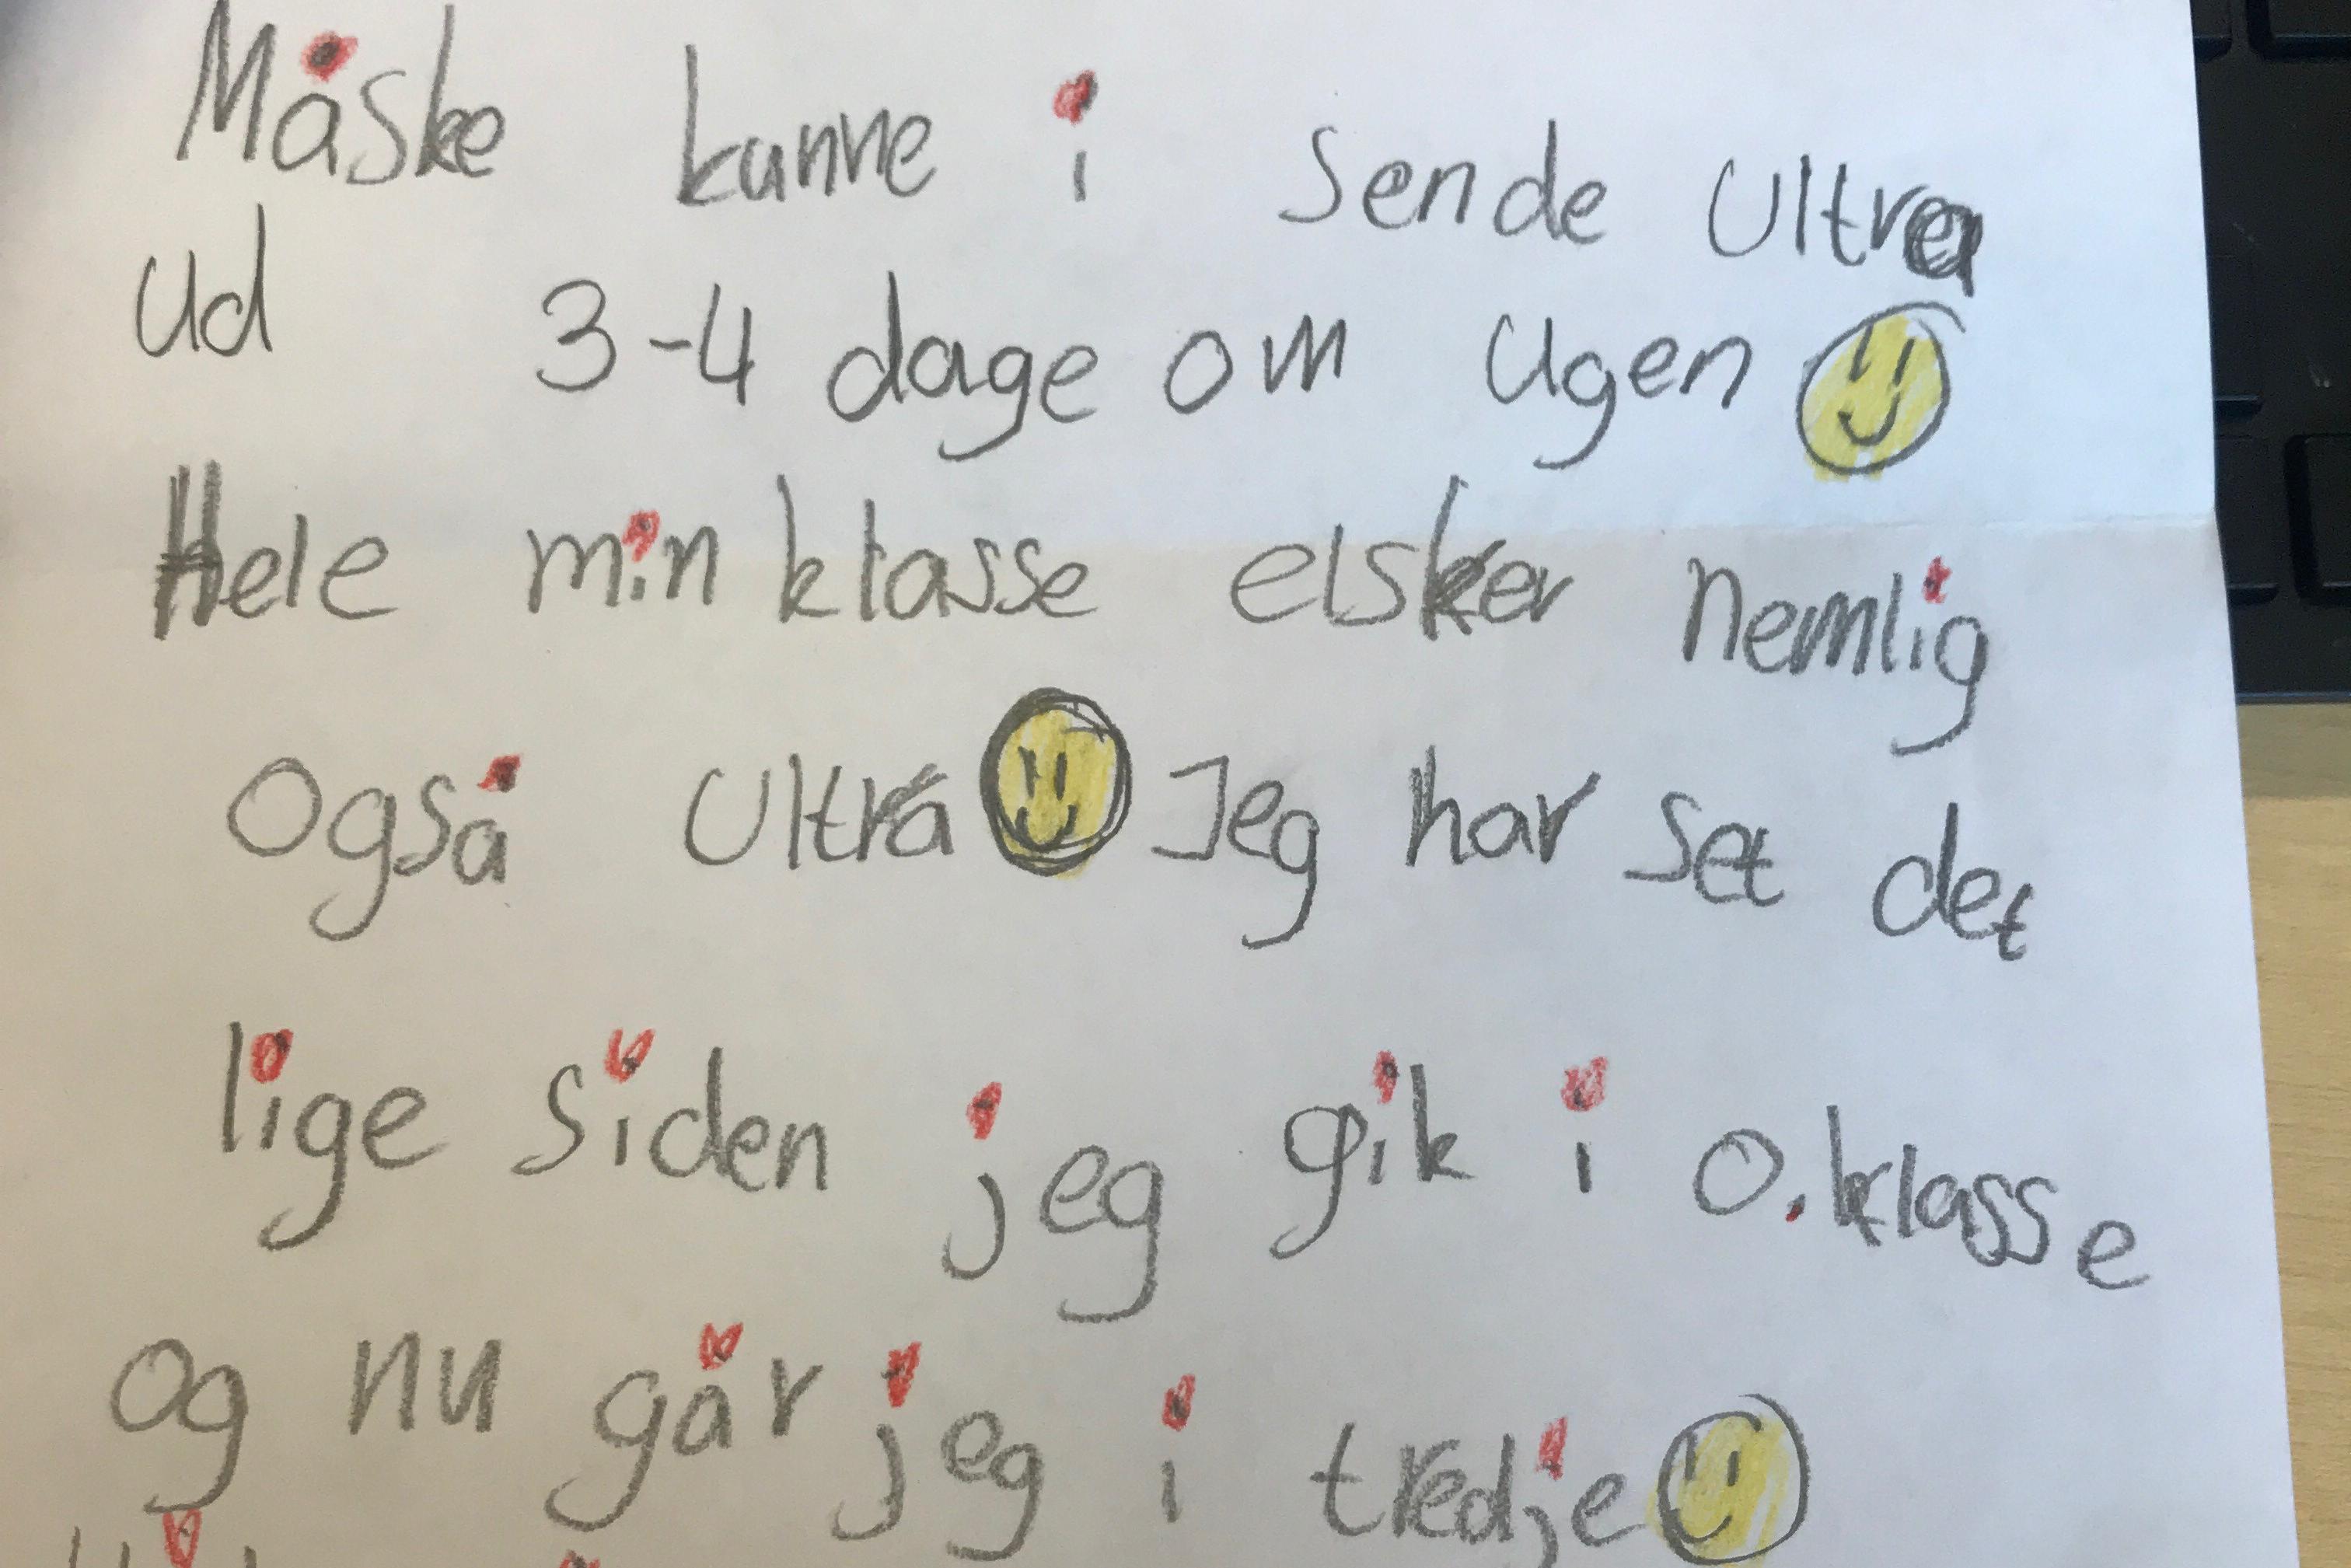 Måske kunne i sende Ultra
ud 3-4 dage om ugen
Hele min klasse elsker nemlig
også Ultra Jeg har set det
lige siden jeg gik i 0.klasse
og nu går jeg i tredje